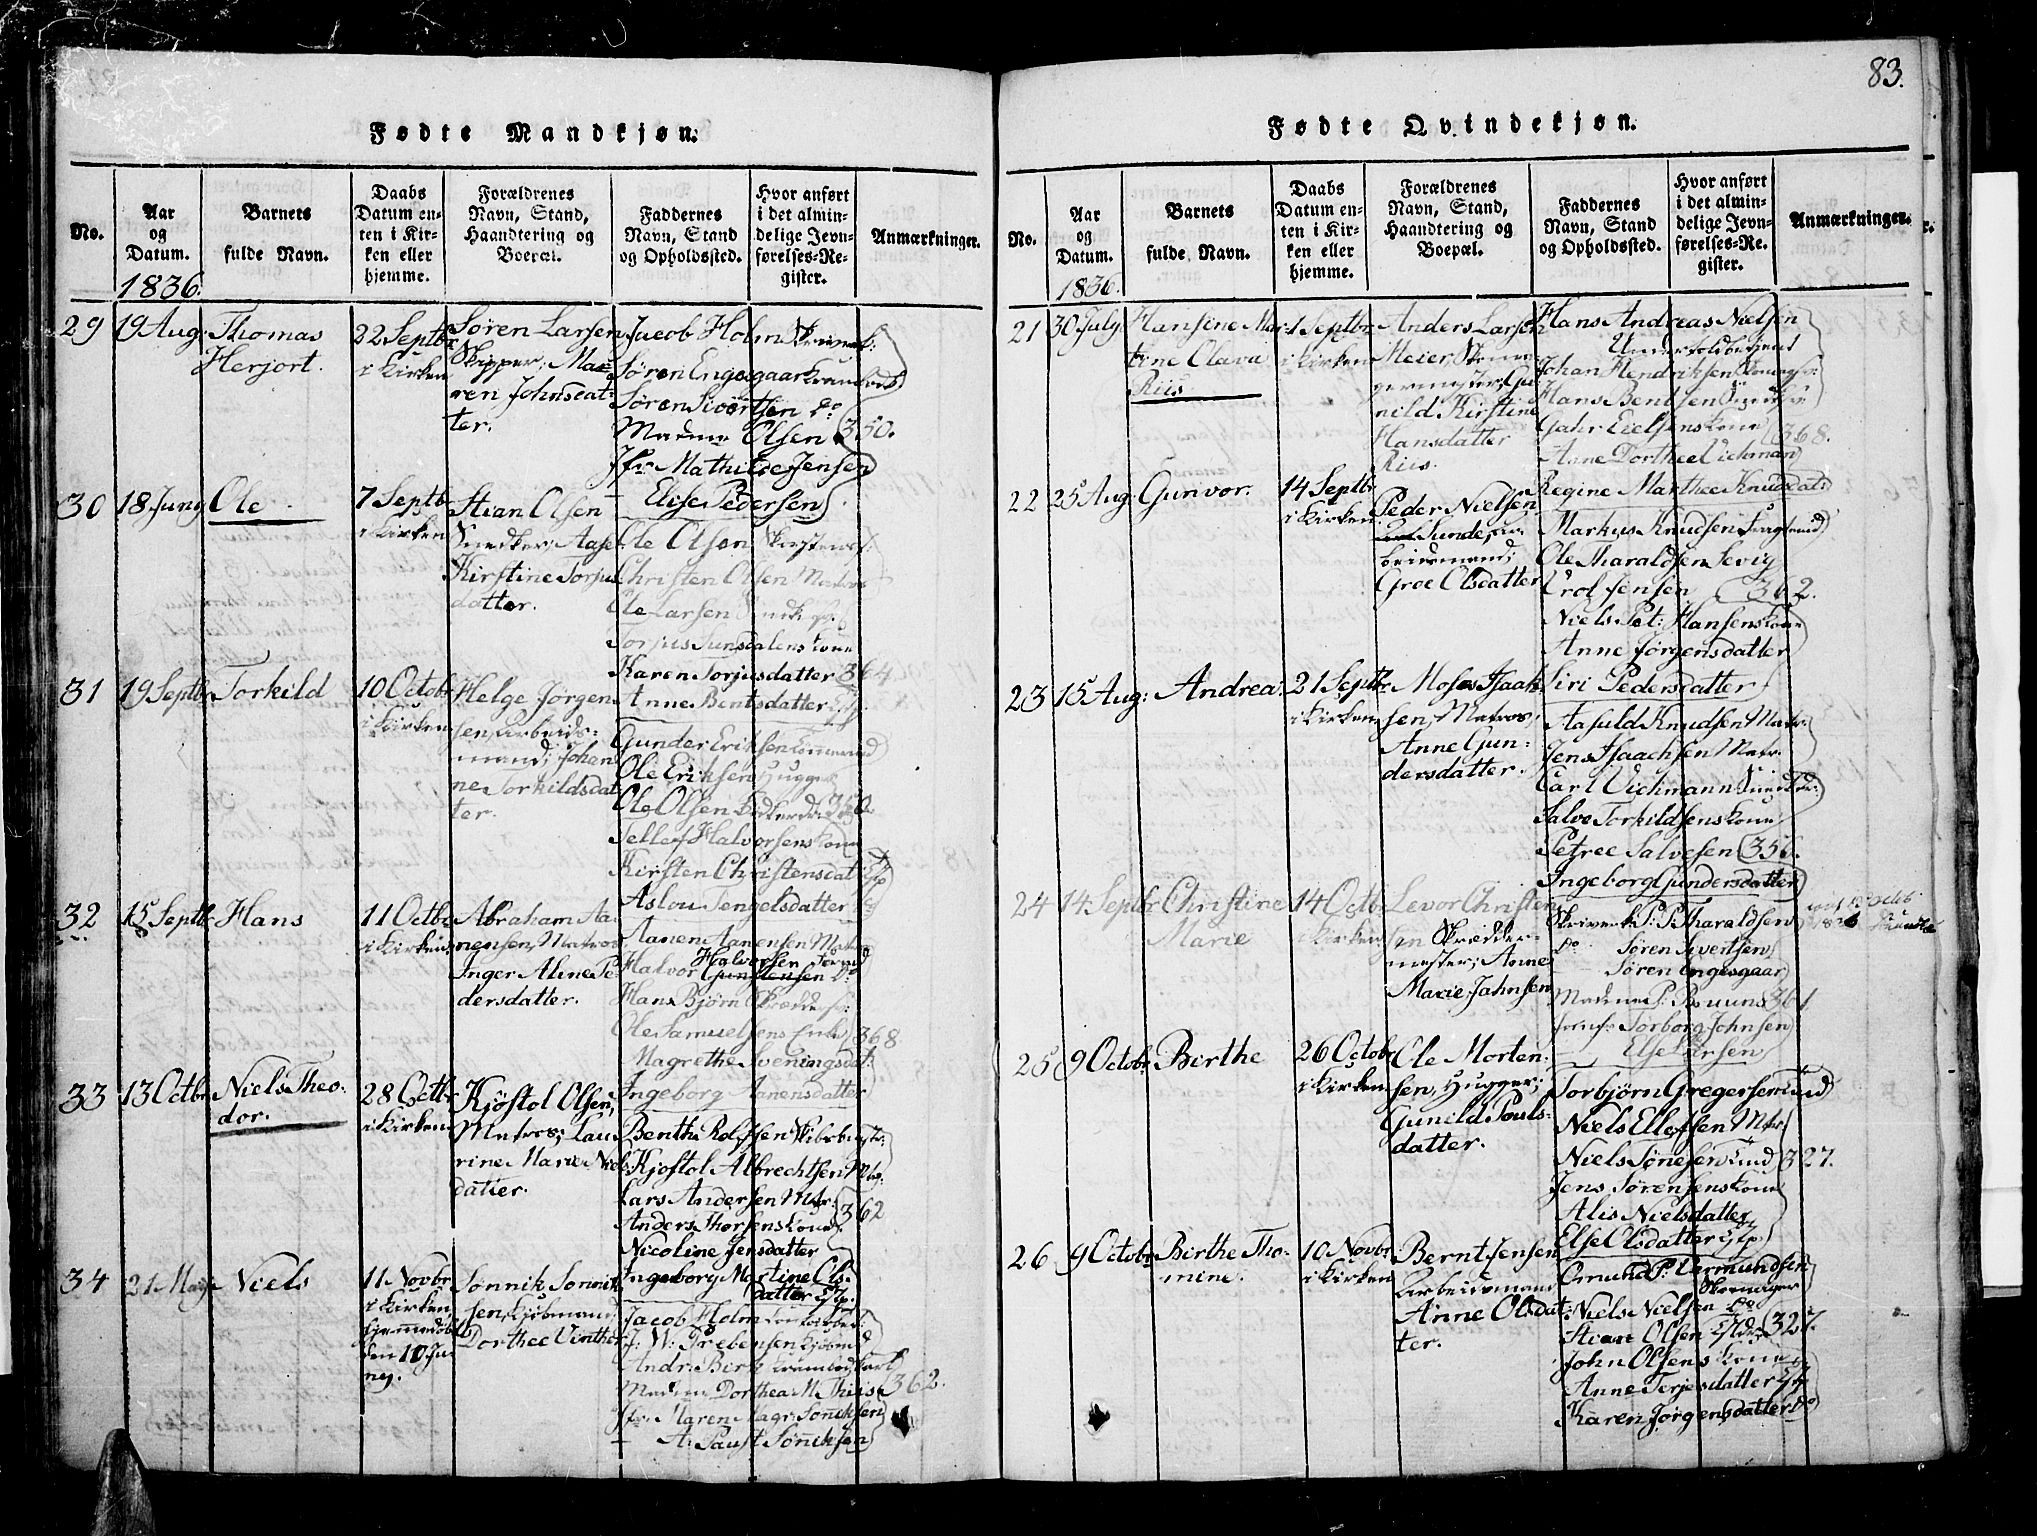 83.
Fødte Mandkjøn.
No.
Aar
og
Datum.
1836.
Barnets
fulde Navn.
Daabs
Datum en-
ten i Kir-
ken eller
hjemme.
Forældrenes
Navn, Stand,
Haandtering og
Boepæl.
Faddernes
Navn, Stand
og Opholdssted.
Hvor anført
i det almin-
delige Jevn-
førelses-Re-
gister.
Anmærkninger.
29
19 Aug:
Thomas
Herjort.
22 Septbr
i Kirken
Søren Larsen
Skipper; Ma-
ren Johnsdat-
ter.
Jacob Holm
Søren Engesgaar
Søren Sivertsen do
Madme Olsen
Jfr Mathilde Jensen
Elise Pedersen
350.
30
18 Juny
Ole
7 Septbr
i Kirken
Stian Olsen
Snedker; Aase
Kirstine Torju
datter.
Ole Olsen
Christen Olsen Matros
Ole Larsen
Karen Torjusdatter
Anne Bentsdatter
364
31
19 Septbr
Torkild
10 Octobr
i Kirken
Helge Jörgen
sen, Arbeids-
mand; Johan
ne Torkildsdat
ter.
Gunder Eriksen
Ole Eriksen Hugger
Ole Olsen
Tellef Halvorsens Kone
Kirsten Christensdat
Aslou Tengelsdatter
350
32
15 Septbr
Hans
11 Octbr
i Kirken
Abraham Aa
nensen, Matros
Inger Aline Pe
dersdatter.
Aanen Aanensen Matr
Halvorsen
Halvor Gunstensen do
Hans Bjørn
Ole Samuelsens Enke
Magrethe Sveningsdat:
Ingeborg Aanensdatter
368
33
13 Octbr
Niels Theo-
dor.
28 Octbr
i Kirken
Kjöstol Olsen,
Matros; Lau
rine Marie Niels
datter.
Benth Rolfsen
Kjostol Albrechtsen Mtr.
Lars Andersen Mtr:
Anders Thorsens Kone
Nicoline Jensdatter
Ingeborg Martine Ols-
datter
362
34
21 May
Niels
11 Novbr
i Kirken
hjemmedöb
den 10 Ju
ny.
Sonnik Sonnik
sen, Kjöbmand
Dorthee Vinther
Jacob Holm
J. W: Prebensen Kjöbmd
Andr: Berg
Madme Dorthea M. Thiis
Jfr: Maren Magr: Sonniksen
A: Paust Sonniksen
362.
Fødte Qvindekjøn.
No.
Aar
og
Datum.
1836.
Barnets
fulde Navn.
Daabs
Datum en-
ten i Kir-
ken eller
hjemme.
Forældrenes
Navn, Stand,
Haandtering og
Boepæl.
Faddernes
Navn, Stand
og Opholdssted.
Hvor anført
i det almin-
delige Jevn-
førelses-Re-
gister.
Anmærkninger.
21
30 July
Hansine Mar-
tine Olava
Riis
1 Septbr
i Kirken
Anders Larsen
Meier,
Gu
nild Kirstine
Hansdatter
Riis.
Hans Andreas Nielsen
Undertoldbetjent
Johan Hendriksen
Hans Bentsen
Anne Dorthee Vichman
Regine Marthee Knudsdat:
368.
22
25 Aug:
Gunvor.
14 Septbr
i Kirken
Peder Nielsen
Sunde, ar
beidsmand;
Groe Olsdatter
Markus Knudsen
Ole Tharaldsen Sevig
Niels Pet: Hansens Kone
Anne Jörgensdatter
Siri Pedersdatter
362.
23
15 Aug:
Andrea
21 Septbr
i Kirken
Moses Isaak
sen, Matros;
Anne Gun-
dersdatter.
Aasuld Knudsen Matr:
Jens Isaachsen Matr.
Carl Vichmann
Salve Torkildsens Kone
Petree Salvesen
Ingeborg Gundersdatter
356.
24
14 Septbr
Christine
Marie
14 Octbr
i Kirken
Levor Christen
sen Skrædder-
mester; Anne
Marie Jahnsen
P: Tharaldsen
do Søren Sivertsen
Søren Engesgaar
Madme P: Bruuns
Torborg Johnsen
Else Larsen
361
25
9 Octobr
Birthe
26 Octobr
i Kirken
Ole Morten-
sen, Hugger;
Gunild Pouls-
datter.
Torbjörn Gregersen
Niels Ellefsen Mtr
Niels Tönesen
Jens Sörensens Kone
Alis Nielsdatter
Else Olsdatter
327.
26
9 Octobr
Birthe Tho-
mine.
10 Novbr
i Kirken
Bernt Jensen
Arbeidsmand
Anne Olsdat:
ter.
Omund P: Vermundsen
Skomager
Niels Nielsen do
Stian Olsen
John Olsens Kone
Anne Terjesdatter
Karen Jörgensdatter do
327.